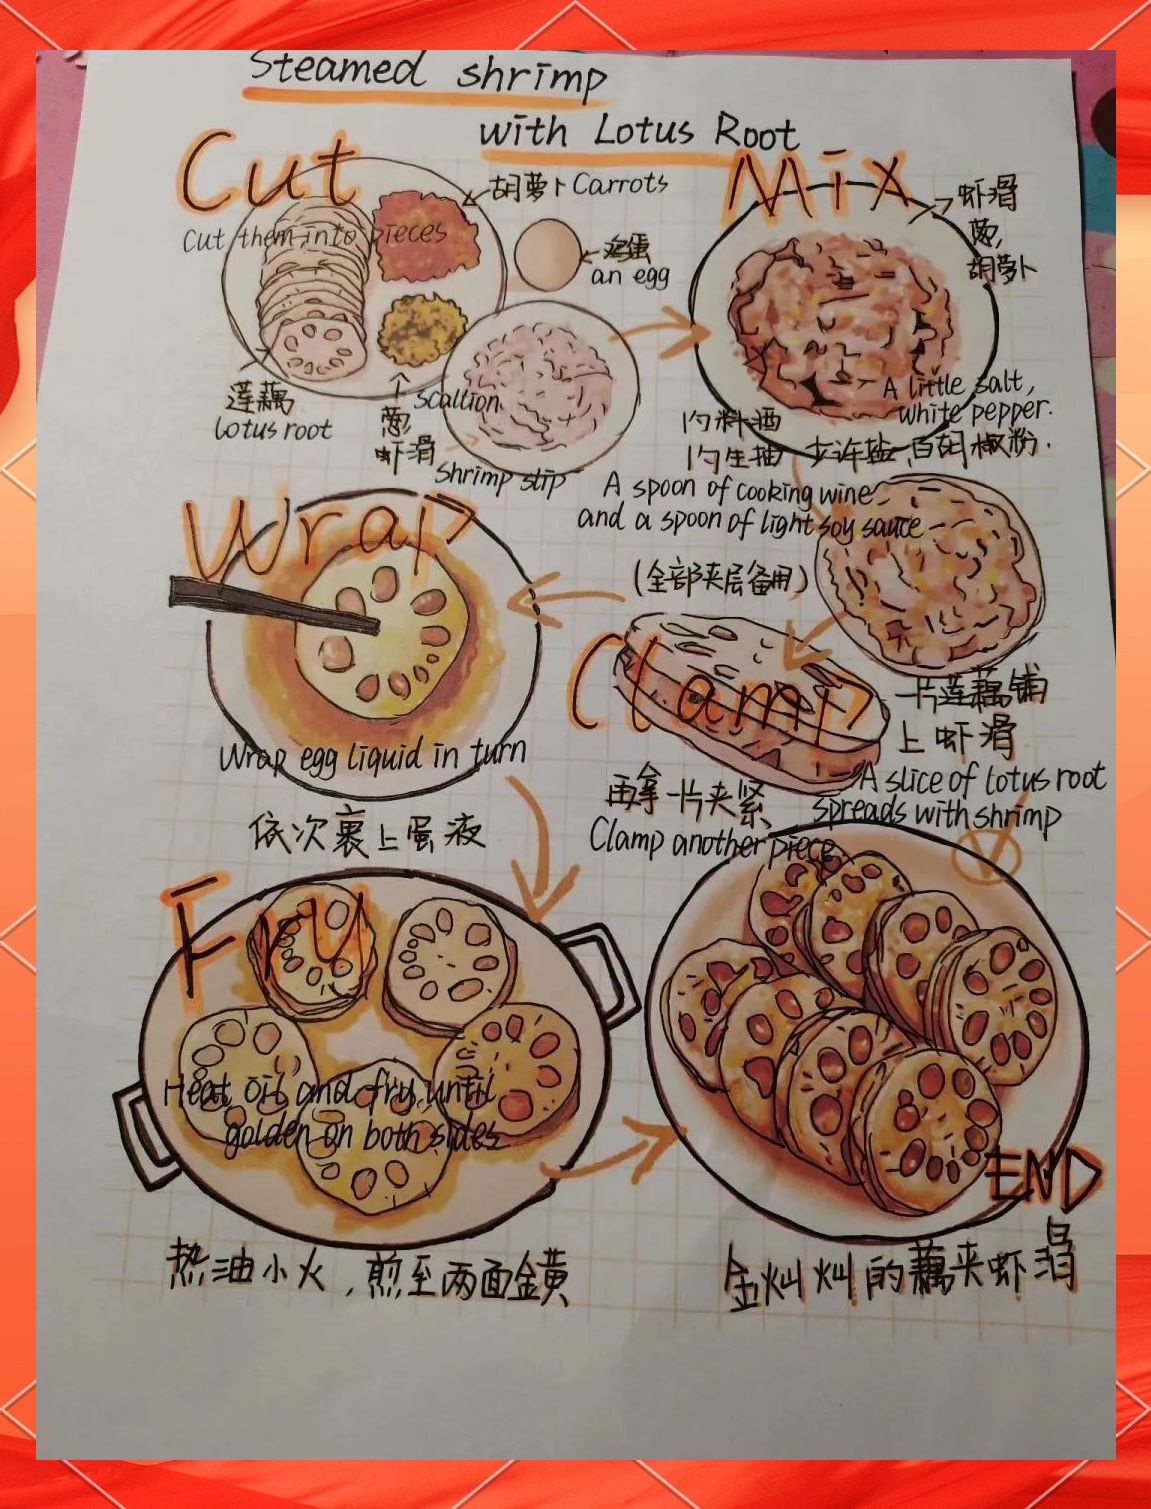 Steamed shrimp
with Lotus Root
Cut
Cut them into pieces
胡萝卜 Carrots
鸡蛋
an egg
莲藕
lotus root
scallion
葱
虾滑
Shrimp slip
Mix
虾滑
葱,
胡萝卜
A little salt,
white pepper.
1勺料酒
1勺生抽 少许盐、白胡椒粉.
A spoon of cooking wine
and a spoon of light soy sauce
(全部夹层备用)
Clamp
一片莲藕铺
上虾滑
A slice of lotus root
spreads with shrimp
再拿一片夹紧
Clamp another piece
Wrap
Wrap egg liquid in turn
依次裹上蛋液
Fry
Heat oil and fry until
golden on both sides
热油小火,煎至两面金黄
END
金灿灿的藕夹虾滑